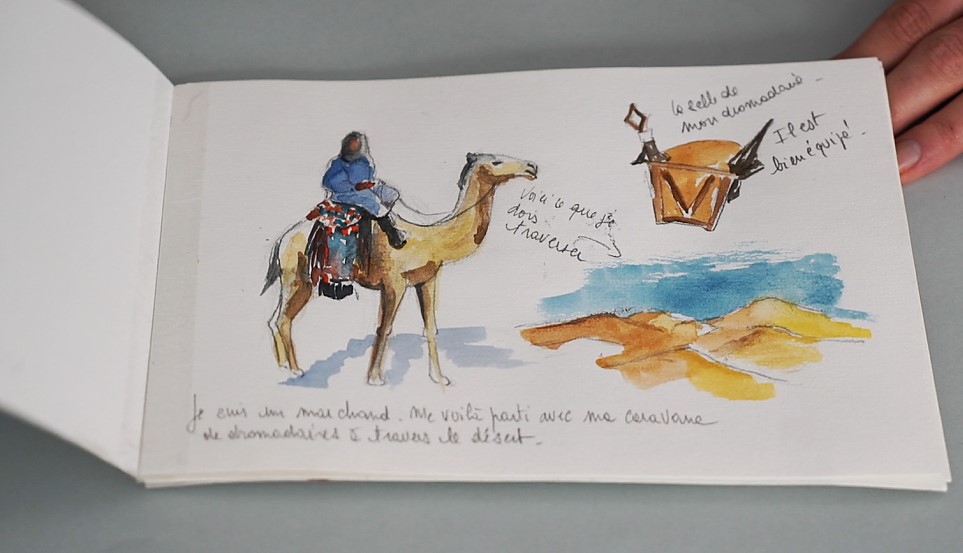 la selle de
mon dromadaire.
Il est
bien équipé!
Voilà ce que je
dois
traverser
Je suis un marchand. Me voilà parti avec ma caravane
de dromadaires à travers le désert.